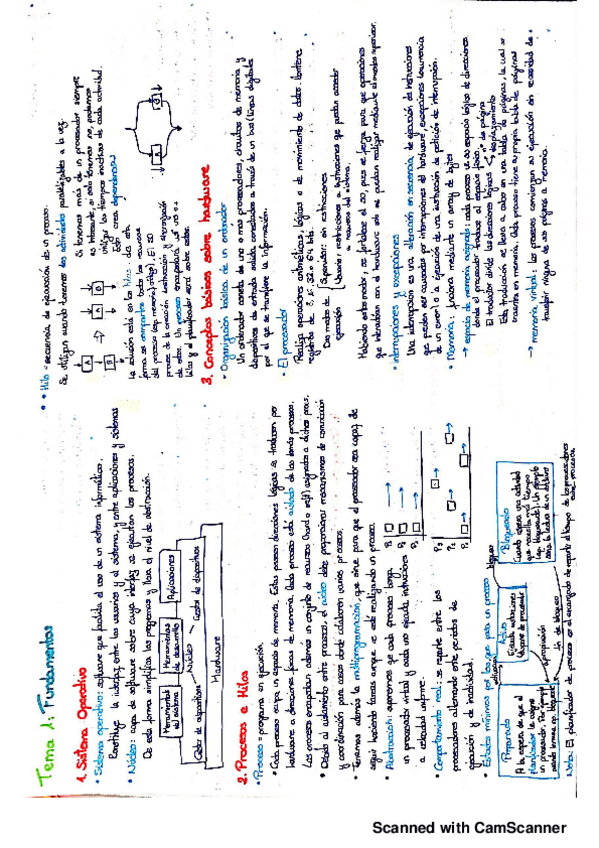 Tema 1: Fundamentos
1. Sistema Operativo
• Sistema operativo: software que facilita el uso de un sistema informático.
Constituye la interfaz entre los usuarios y el sistema, y entre aplicaciones y sistemas
• Núcleo: capa de software sobre cuya interfaz se ejecutan los procesos.
De esta forma simplifica los programas y lleva el nivel de abstracción.
Herramientas del sistema
Herramientas de desarrollo
Aplicaciones
Núcleo
Gestor de dispositivos
Gestor de dispositivos
Hardware
2. Procesos e Hilos
• Proceso = programa en ejecución.
• Cada proceso ocupa un espacio de memoria. Estas poseen direcciones lógicas se traducen por
hardware a direcciones físicas de memoria. Cada proceso está aislado de los demás procesos.
Los procesos encapsulan además un conjunto de recursos (hard o soft) asignados a dichos proc.
• Debido al aislamiento entre procesos, el núcleo debe proporcionar mecanismos de comunicación
y coordinación para casos donde colaboran varios procesos.
• Tenemos además la multiprogramación, que sirve para que el procesador sea capaz de
seguir haciendo tareas aunque se esté realizando un proceso.
• Abstracción: suponemos que cada proceso tenga
un procesador virtual y cada uno ejecuta instrucciones
a velocidad uniforme.
P1
P2
P3
• Comportamiento real: se reparte entre los
procesadores alternando entre periodos de
ejecución y de inactividad.
P1
P2
P3
• Estados mínimos por los que pasa un proceso
Preparado
A la espera de que el
planificador le asigne
un procesador. Por ejemplo
Activo
Ejecuta instrucciones
Dispone de procesador
Bloqueado
Cuando espera una actividad
que necesita más tiempo
activación
expropiación
bloqueo
fin de bloqueo
Nota: El planificador de procesos es el encargado de repartir el tiempo de los procesadores
entre procesos
• Hilo = secuencia de ejecución de un proceso.
Se utilizan cuando tenemos dos actividades paralelizables a la vez.
Si tenemos más de un procesador siempre
es interesante, si solo tenemos uno, podemos
utilizar los tiempos inactivos de cada actividad.
Esto crea dependencias
A
B
A
B
La solución está en los hilos: de esta
forma se comparten todos los recursos
del proceso (ej: memoria, código). El SO
provee de la creación, destrucción y sincronización
de estos. Un proceso encapsulará así uno o +
hilos y el planificador será sobre estos.
3. Conceptos básicos sobre hardware
• Organización básica de un ordenador
Un ordenador consta de uno o más procesadores, circuitos de memoria y
dispositivos de entrada salida conectados a través de un bus (líneas digitales
por el que se transfiere la información.
• El procesador
Realiza operaciones aritméticas, lógicas o de movimiento de datos. Contiene
registros de 8, 16, 32 o 64 bits.
Dos modos de ejecución
Supervisor: sin restricciones
Usuario: restricciones a instrucciones que podrían acceder
a recursos del sistema.
Habiendo estos modos, se fortalece el SO, pues se fuerza para que operaciones
que interactúan con el hardware solo se puedan realizar mediante el modo supervisor.
• Interrupciones y excepciones
Una interrupción es una alteración en secuencia de ejecución de instrucciones
que pueden ser causadas por interrupciones del hardware, excepciones (ocurrencia
de un error) o la ejecución de una instrucción de petición de interrupción.
• Memoria: funciona mediante un array de bytes
→ espacio de memoria asignado: cada proceso ve su espacio lógico de direcciones
donde el procesador traduce al espacio físico.
El traductor divide las direcciones lógicas
nº de página
desplazamiento
Esta traducción se lleva a cabo en una tabla de páginas, la cual se
encuentra en memoria. Cada proceso tiene su propia tabla de páginas
→ memoria virtual: los procesos comienzan su ejecución sin necesidad de
traducir ninguna de sus páginas a memoria.
Scanned with CamScanner